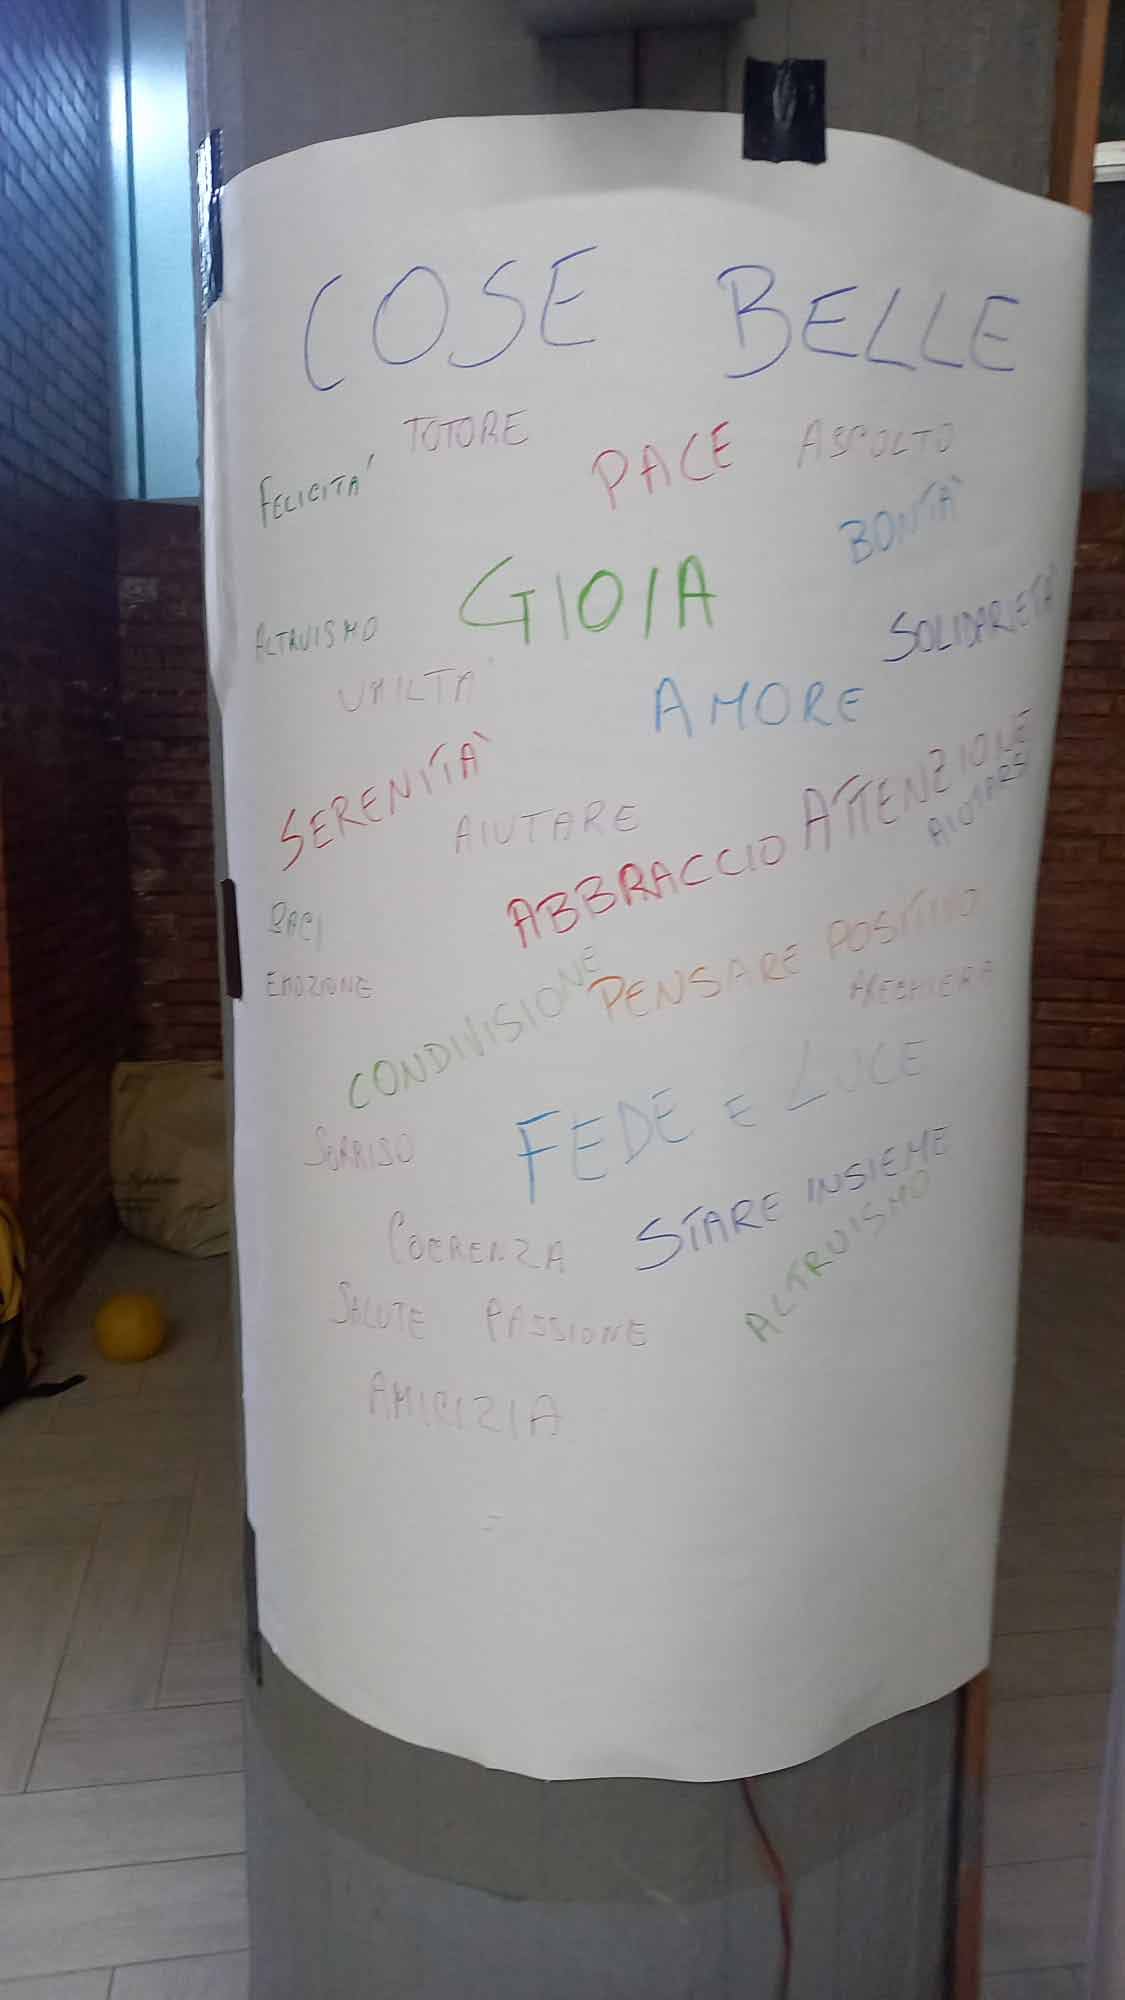 COSE BELLE
TOTORE
PACE
ASCOLTO
FELICITA'
BONTA'
GIOIA
ALTRUISMO
SOLIDARIETA'
UMILTA'
AMORE
SERENITA'
ATTENZIONE
AIUTARE
AIUTARSI
ABBRACCIO
BACI
PENSARE POSITIVO
EMOZIONE
CONDIVISIONE
FEDE E LUCE
SORRISO
STARE INSIEME
COERENZA
ALTRUISMO
SALUTE
PASSIONE
AMICIZIA